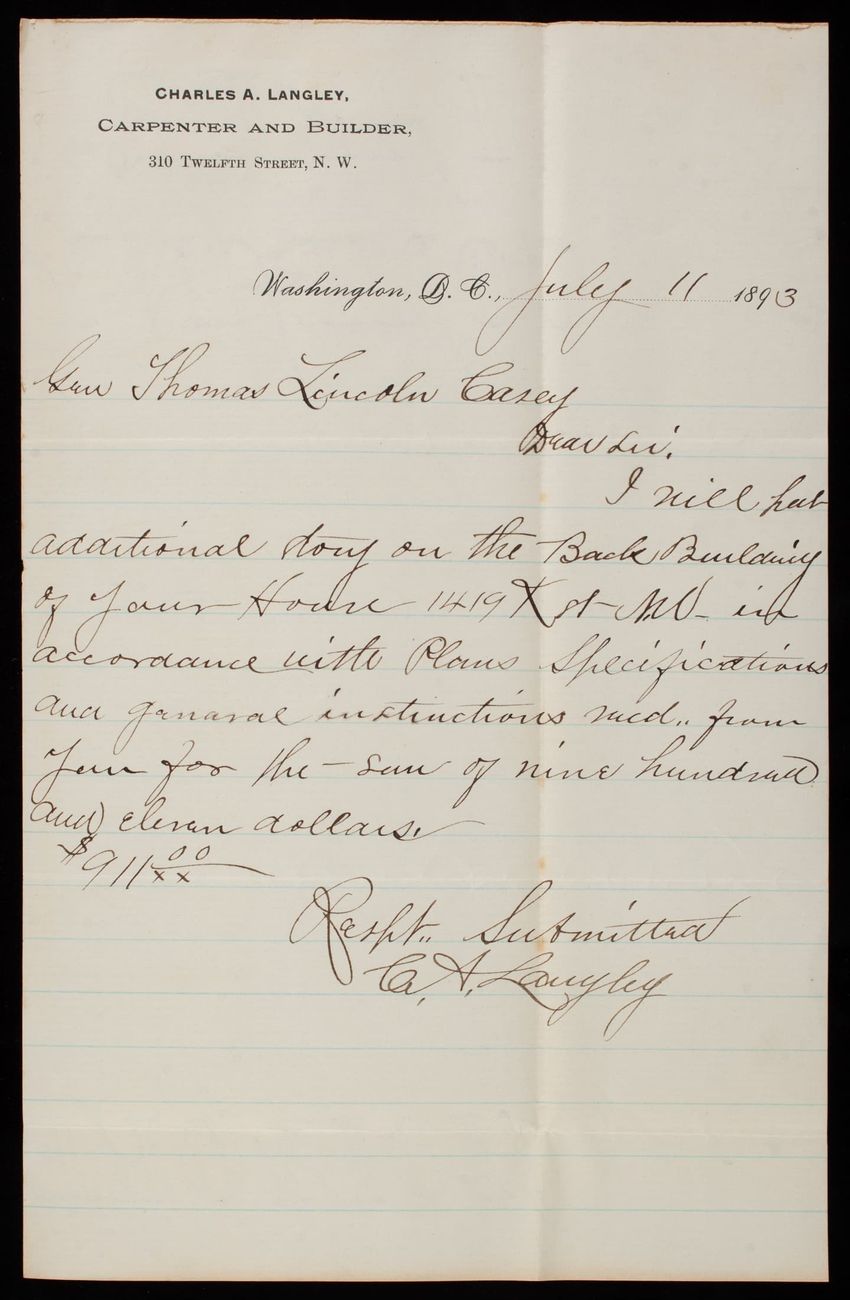 CHARLES A. LANGLEY,
CARPENTER AND BUILDER,
310 TWELFTH STREET, N. W.
Washington, D. C., July 11 1893
Gen Thomas Lincoln Casey
Dear Sir.
I will put
additional story on the Back Building
of your House 1419 K st N.W. in
accordance with Plans Specifications
and general instructions recd.. from
you for the sum of nine hundred
and eleven dollars.
$911 00/xx
Respt.. Submitted
C. A. Langley